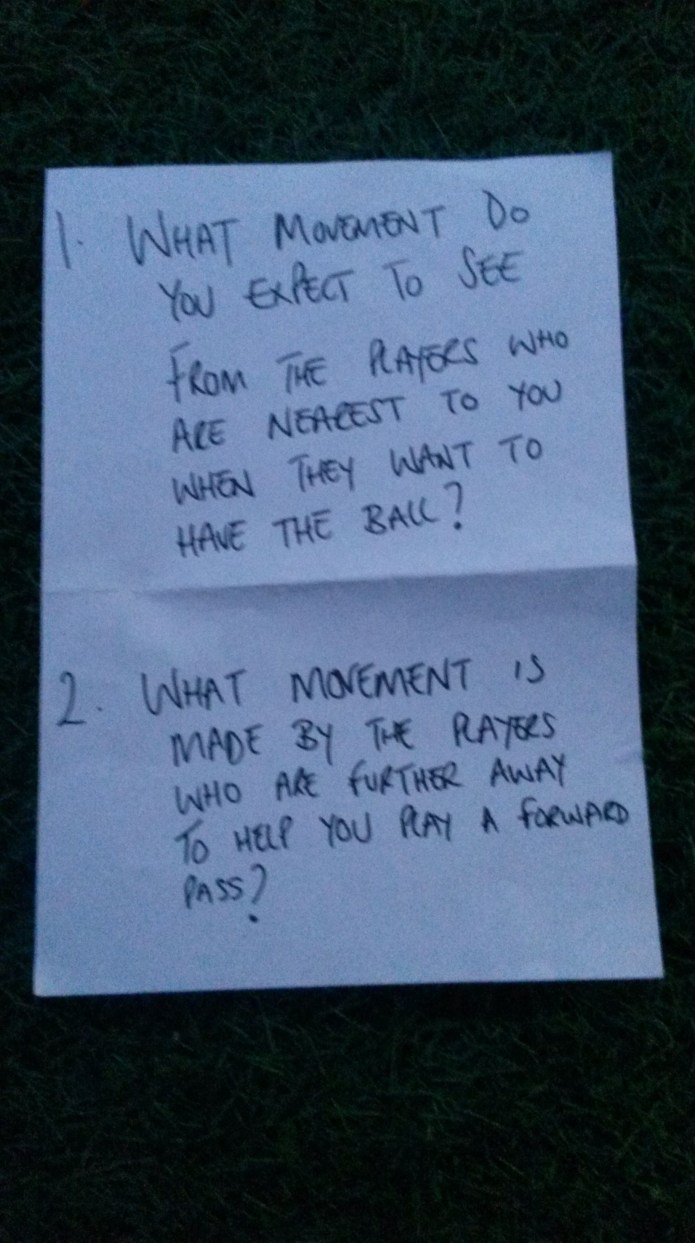 1. WHAT MOVEMENT DO
YOU EXPECT TO SEE
FROM THE PLAYERS WHO
ARE NEAREST TO YOU
WHEN THEY WANT TO
HAVE THE BALL?
2. WHAT MOVEMENT IS
MADE BY THE PLAYERS
WHO ARE FURTHER AWAY
TO HELP YOU PLAY A FORWARD
PASS?